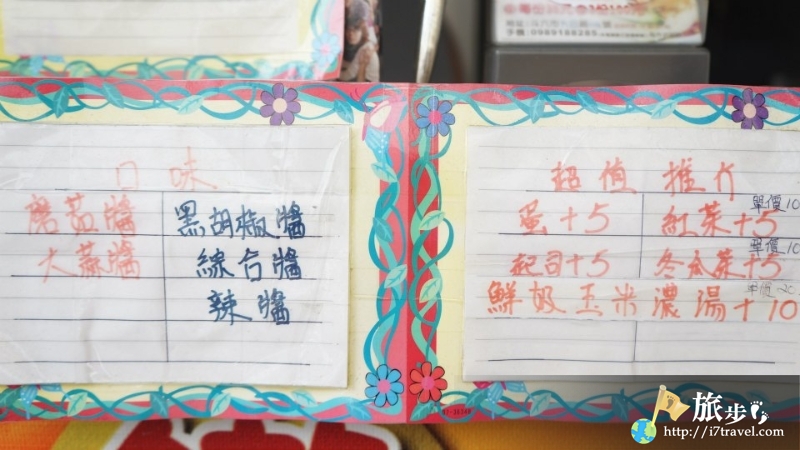 口味
蘑菇醬 黑胡椒醬
大蒜醬 綜合醬
辣醬
超值推介
單價10
蛋+5 紅茶+5
單價10
起司+5 冬瓜茶+5
單價20
鮮奶玉米濃湯+10
旅步
http://i7travel.com